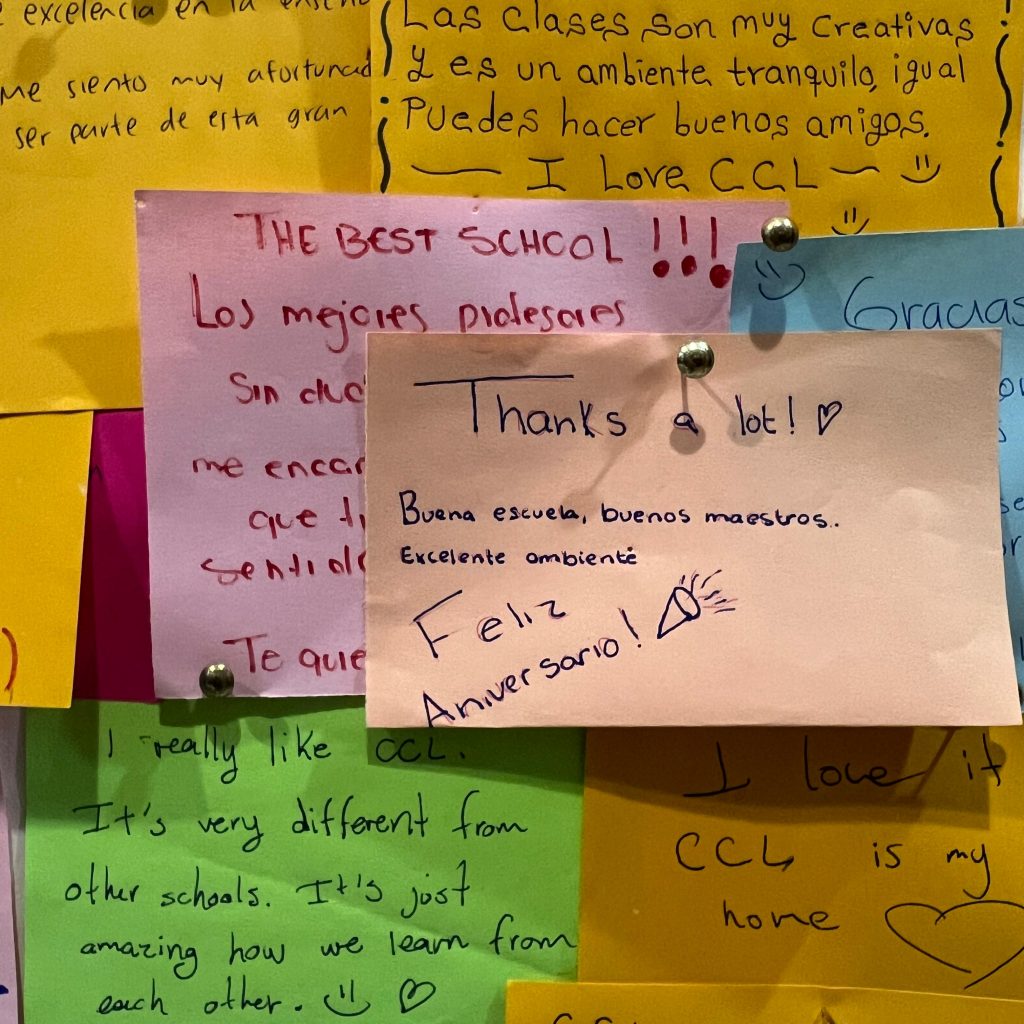 excelencia en la
me siento muy afortunad
ser parte de esta gran
Las clases son muy creativas
y es un ambiente tranquilo, igual
Puedes hacer buenos amigos.
— I Love CCL —
THE BEST SCHOOL !!!
Los mejores profesores
Sin
me
que
Te
Gracias
Thanks a lot!
Buena escuela, buenos maestros..
Excelente ambiente
Feliz
Aniversario!
I really like CCL.
It's very different from
other schools. It's just
amazing how we learn from
each other.
I love it
CCL is my
home